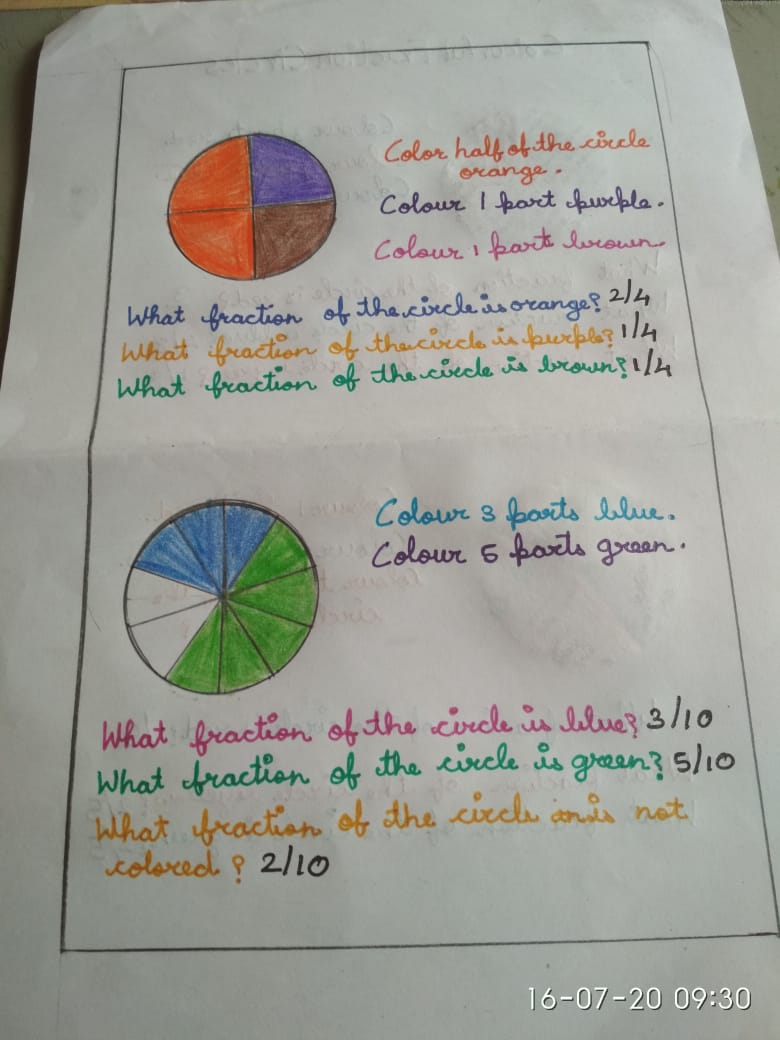 Color half of the circle
orange.
Colour 1 part purple.
Colour 1 part brown.
What fraction of the circle is orange? 2/4
What fraction of the circle is purple? 1/4
What fraction of the circle is brown? 1/4
Colour 3 parts blue.
Colour 5 parts green.
What fraction of the circle is blue? 3/10
What fraction of the circle is green? 5/10
What fraction of the circle is not
colored? 2/10
16-07-20 09:30